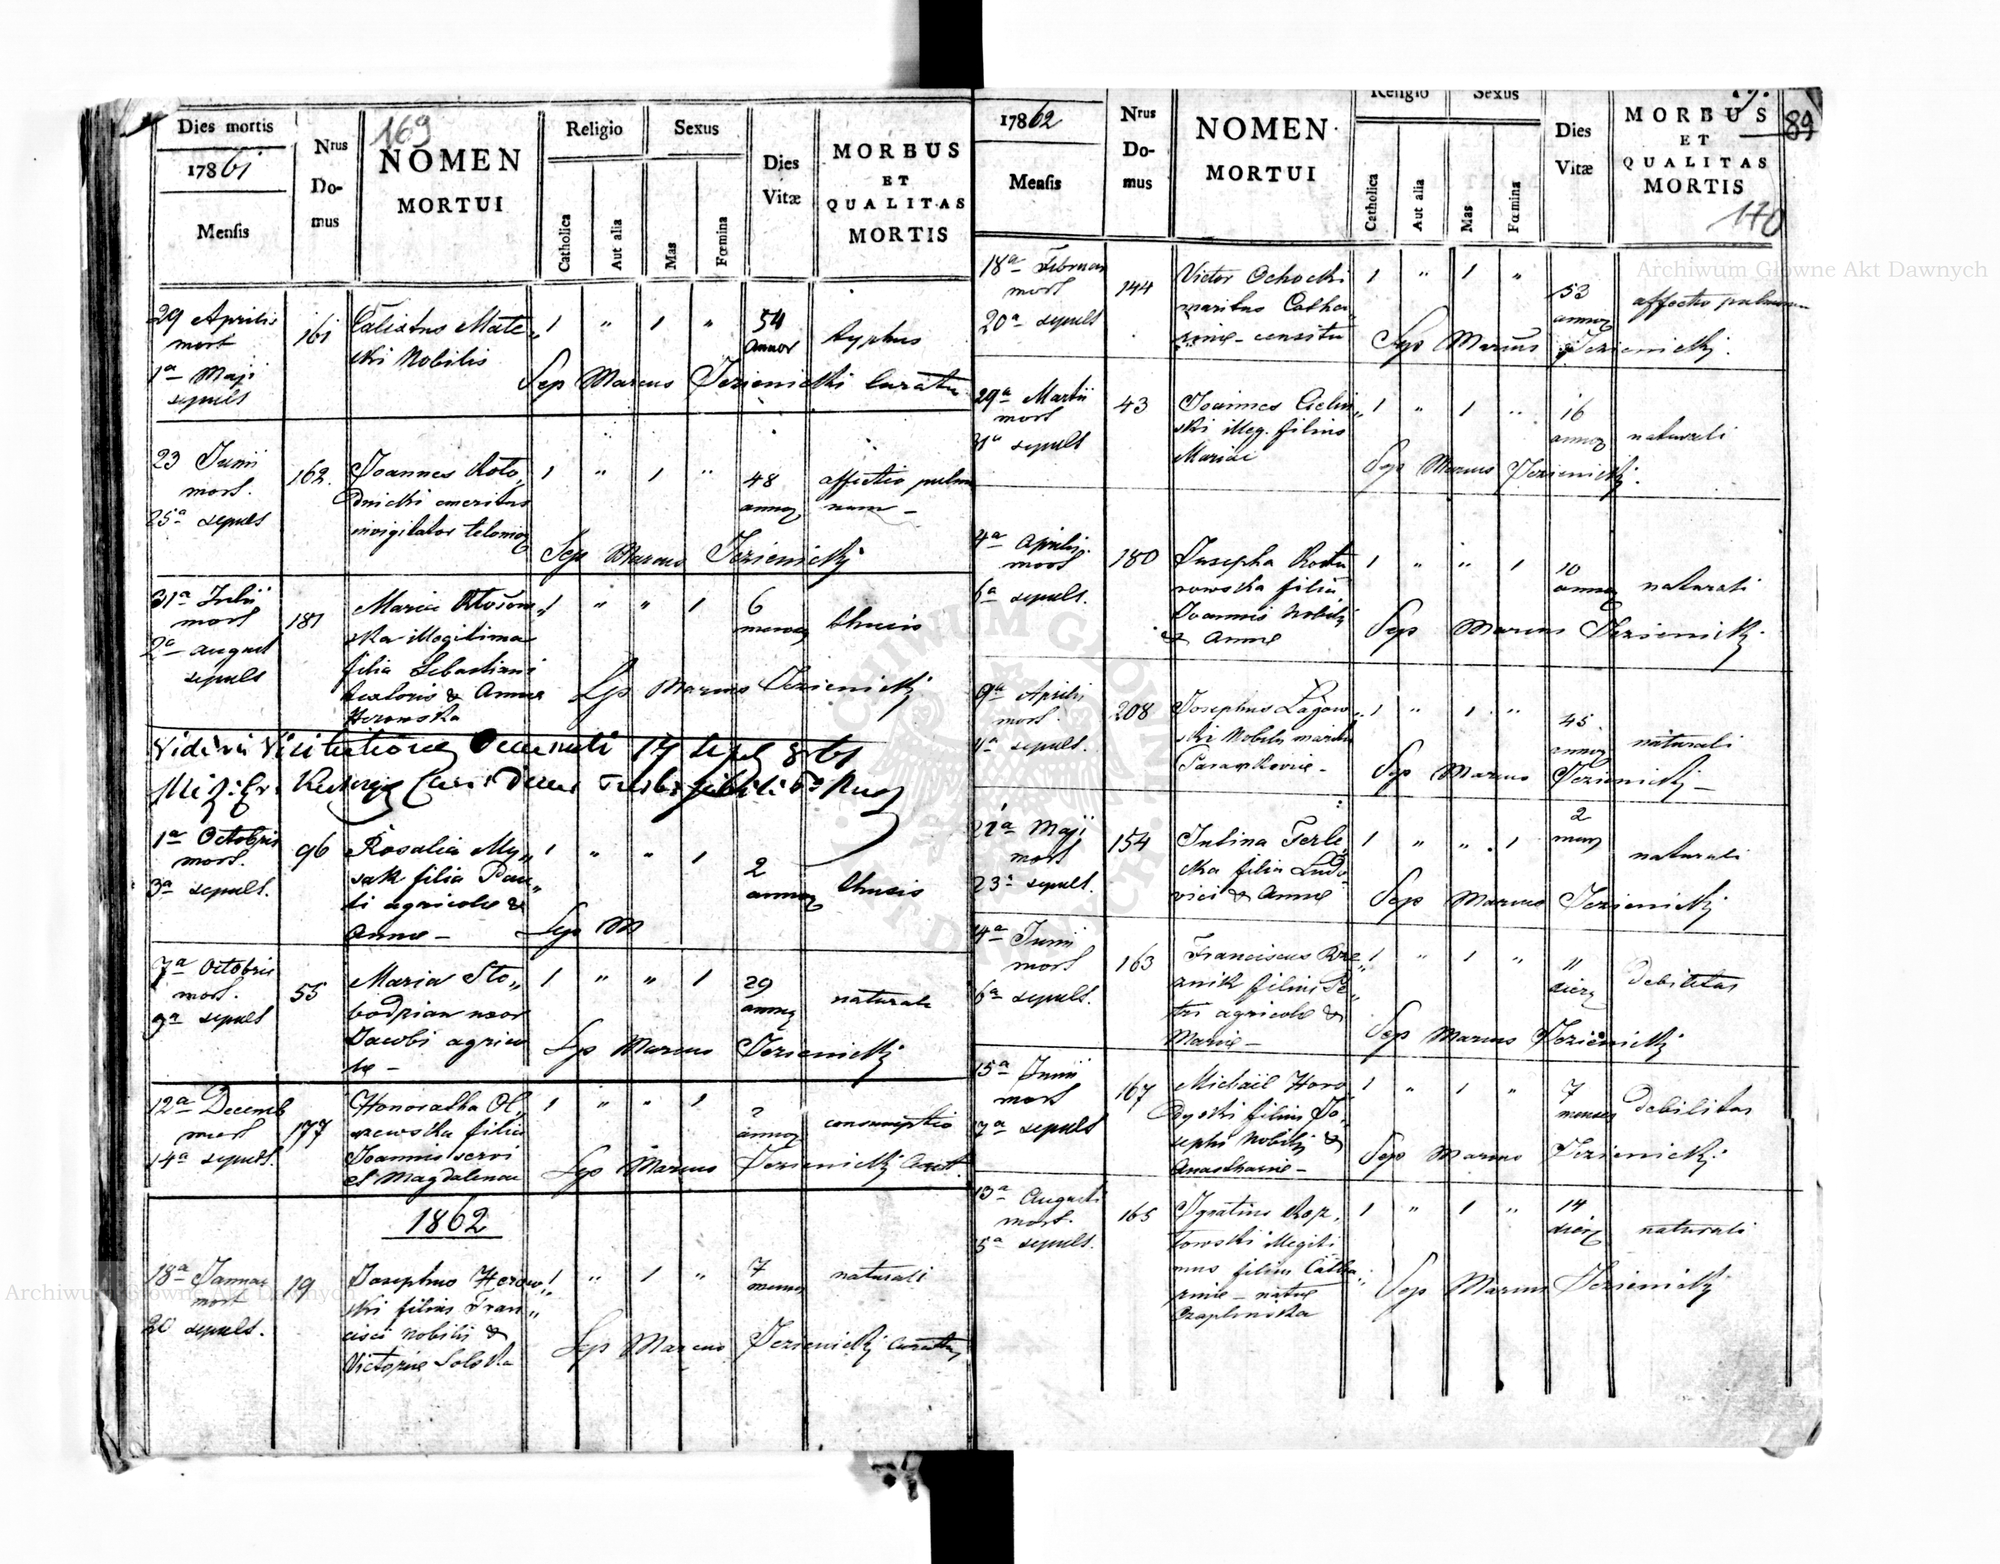 169
Dies mortis
17861
Mensis
Nrus
Do-
mus
NOMEN
MORTUI
Religio
Catholica
Aut alia
Sexus
Mas
Fœmina
Dies
Vitæ
MORBUS
ET
QUALITAS
MORTIS
29 Aprilis
mort
1a Maji
sepult
161
Calixtus Mate„
ski Nobilis
1 „ 1 „
54
annor
typhus
Sep Marcus Jezienicki Curatus
23 Junii
mort.
25a sepult
162.
Joannes Koto„
dnicki emeritus
invigilator
1 „ 1 „
48
annor
affectio pulmo
num –
Sep Marcus Jezienickj
31a Julii
mort
2a august
sepult
181
Maria
ska illegitima
filia Sebastiani
& Annae
1 „ „ 1
6
Sep Marcus Jezienickj
Vidi in Visitatione Decanali 17 Sept 861
1a Octobris
mort.
3a sepult.
96
Rosalia My„
sak filia Pau„
li agricolae &
Annae –
1 „ „ 1
2
annor
thusis
Sep M
7a Octobris
mort.
9a sepult
55
Maria Sto„
bodzian uxor
Jacobi agrico
lae –
1 „ „ 1
29
annor
naturali
Sep Marcus Jezienickj
12a Decemb
mort
14a sepult.
177
Honoratha Ol„
szewska filia
Joannis servi
et Magdalenae
1 „ „ 1
2
annor
consumptio
Sep Marcus Jezienickj Curat.
1862
18a Januar
mort
20 sepult.
19
Josephus Herow„
ski filius Fran„
cisci nobilis &
Victoriae Solska
1 „ 1 „
7
menses
naturali
Sep Marcus Jezienickj Curatus
17862
Mensis
Nrus
Do-
mus
NOMEN
MORTUI
Religio
Catholica
Aut alia
Sexus
Mas
Fœmina
Dies
Vitæ
MORBUS
ET
QUALITAS
MORTIS
89
170
18a Februar
mort
20a sepult
144
Victor Ochocki
maritus Catha
rinae –
1 „ 1 „
53
annor
affectio pulmon
Sep Marcus Jezienickj.
29a Martii
mort
31a sepult
43
Joannes Cielin„
ski illeg. filius
Mariae
1 „ 1 „
16
annor
naturali
Sep Marcus Jezienickj.
4a Aprilis
mort
6a sepult.
180
Josepha Kochа
nowska filia
Joannis Nobilis
& Annae
1 „ „ 1
10
annor
naturali
Sep Marcus Jezienickj.
9a Aprilis
mort.
11a sepult.
208
Josephus Łagow„
ski Nobilis maritus
Paraskeviae –
1 „ 1 „
45
annor
naturali
Sep Marcus Jezienickj –
21a Maji
mort
23a sepult.
154
Julina Terle„
cka filia Ludo„
vici & Annae
1 „ „ 1
2
mens
naturali
Sep Marcus Jezienickj
4a Junii
mort
6a sepult.
163
Franciscus
filius Pe„
tri agricolae &
Mariae –
1 „ 1 „
11
dierum
debilitas
Sep Marcus Jezienickj
15a Junii
mort
17a sepult
167
Michaël Horo
dyski filius Jo„
sephi Nobilis &
Anasthasiae –
1 „ 1 „
7
menses
debilitas
Sep Marcus Jezienickj.
13a Augusti
mort.
15a sepult.
165
Ignatius Kop„
towski illegiti
mus filius Catha„
rinae – natae
Czaplinska
1 „ 1 „
14
dierum
naturali
Sep Marcus Jezienickj
Archiwum Główne Akt Dawnych
Archiwum Główne Akt Dawnych
ARCHIWUM GŁÓWNE AKT DAWNYCH